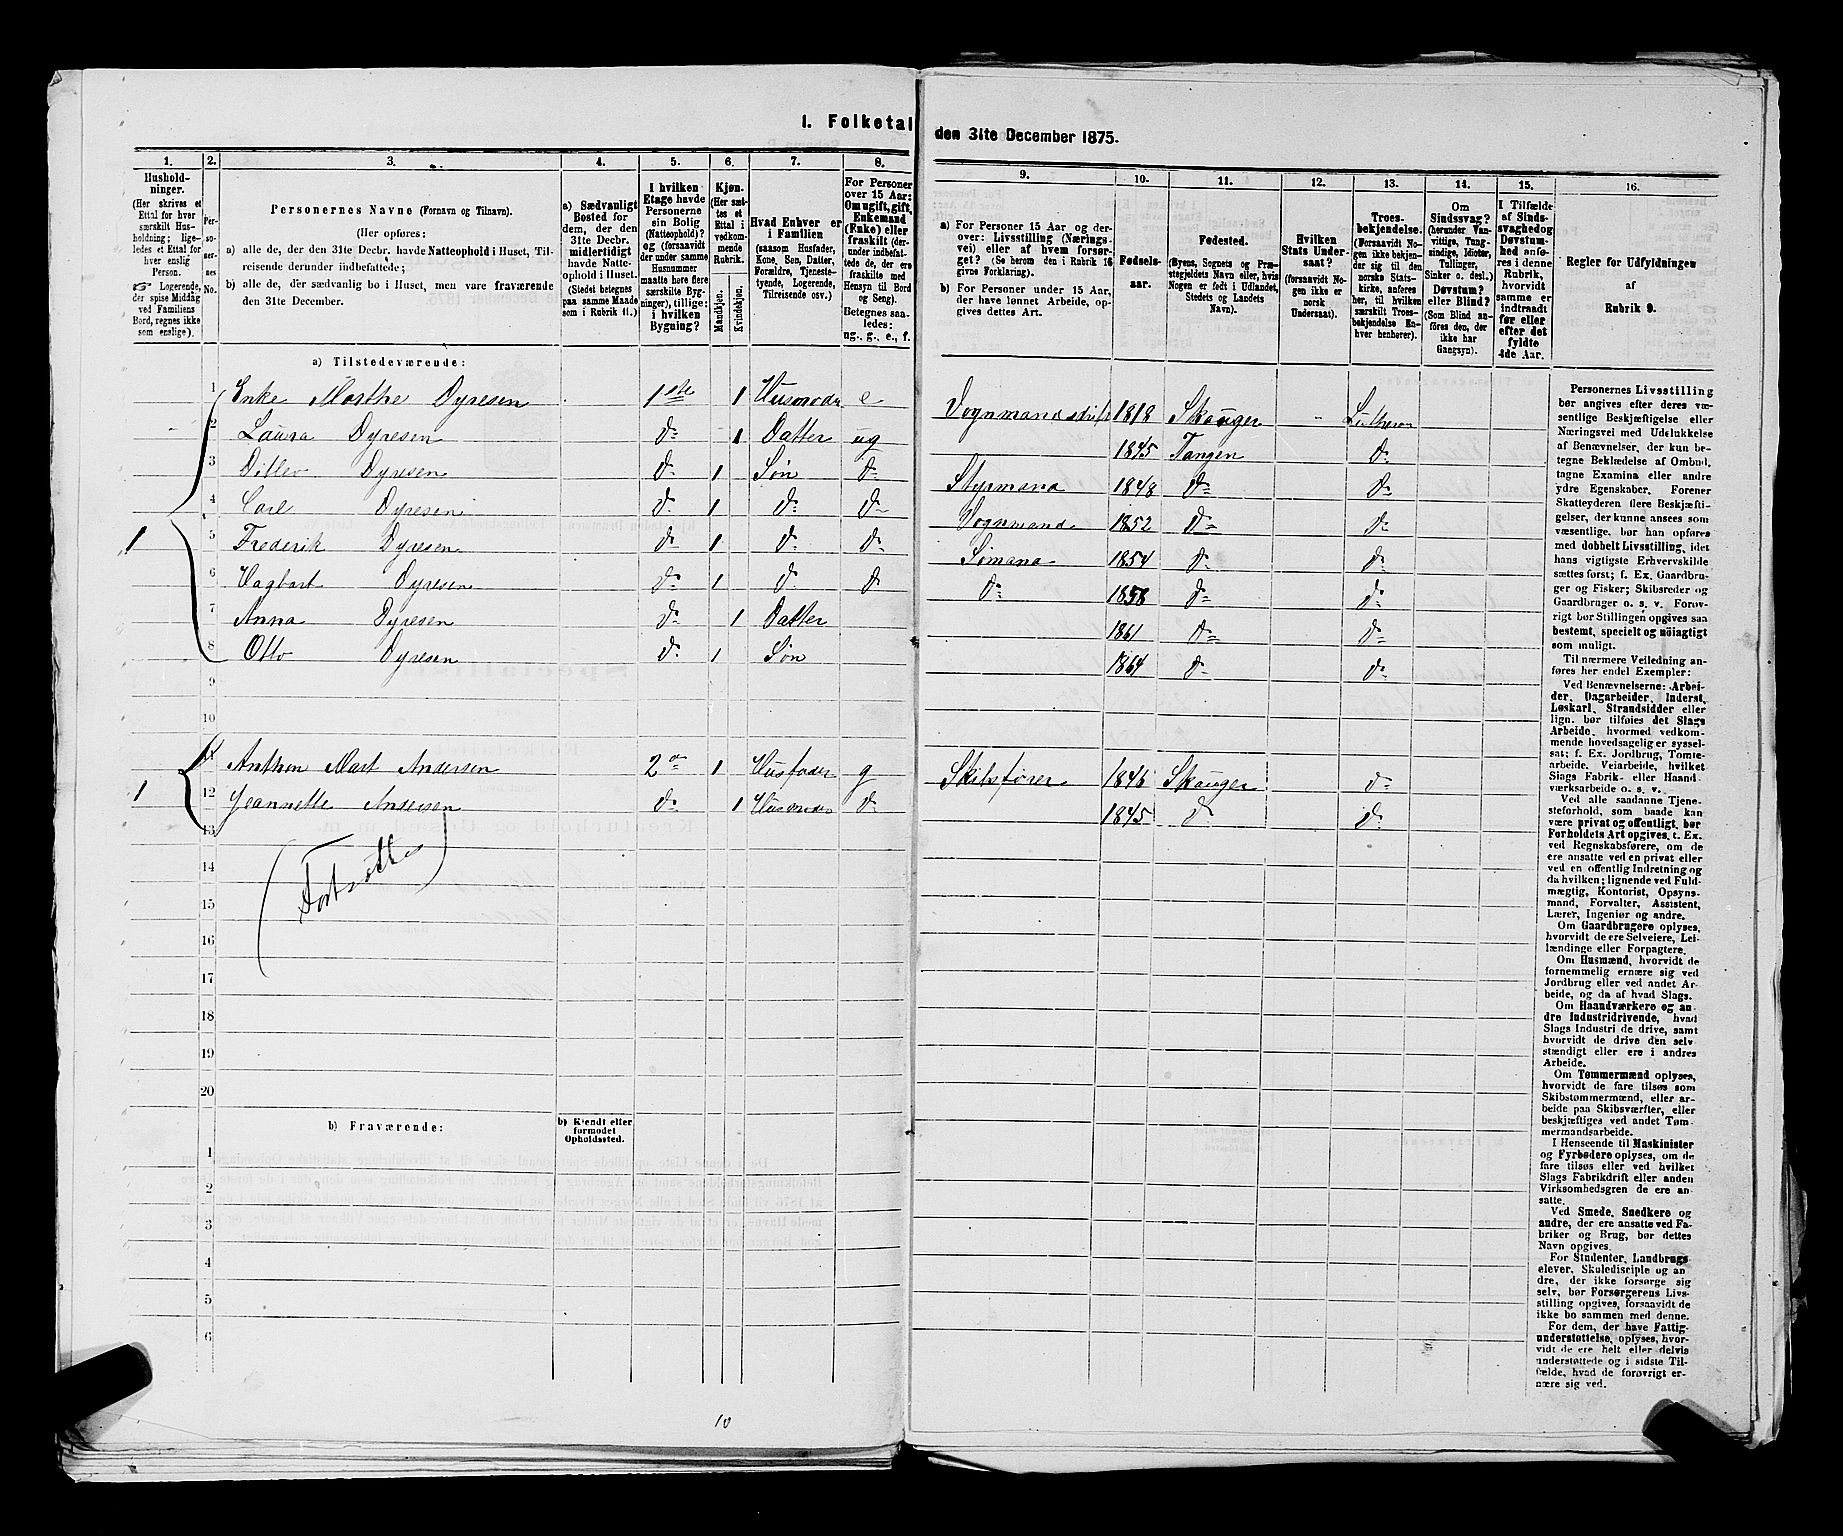 1. Folketal
den 31te December 1875.
1. 2. 3. 4. 5. 6. 7. 8.
9. 10. 11. 12. 13. 14. 15. 16.
Hushold-
ninger.
(Her skrives et
Ettal for hver
særskilt Hus-
holdning; lige-
ledes et Ettal for
hver enslig
Person.
☞ Logerende,
der spise Middag
ved Familiens
Bord, regnes ikke
som enslige).
Per-
so-
ner-
nes
No.
Personernes Navne (Fornavn og Tilnavn).
(Her opføres:
a) alle de, der den 31te Decbr. havde Natteophold i Huset, Til-
reisende derunder indbefattede;
b) alle de, der sædvanlig bo i Huset, men vare fraværende
den 31te December.
a) Sædvanligt
Bosted for
dem, der den
31te Decbr.
midlertidigt
havde Natte-
ophold i Huset.
(Stedet betegnes
paa samme Maade
som i Rubrik 11.)
I hvilken
Etage havde
Personerne
sin Bolig
(Natteophold)?
og (forsaavidt
der under samme
Husnummer
maatte høre flere
særskilte Byg-
ninger), tillige:
i hvilken
Bygning?
Kjøn.
(Her sæt-
tes et
Ettal i
vedkom-
mende
Rubrik.
Mandkjøn.
Kvindekjøn.
Hvad Enhver er
i Familien
(saasom Husfader,
Kone, Søn, Datter,
Forældre, Tjeneste-
tyende, Logerende,
Tilreisende osv.)
For Personer
over 15 Aar:
Om ugift, gift,
Enkemand
(Enke) eller
fraskilt (der-
under indbefat-
tede de, der ere
fraskilte med
Hensyn til Bord
og Seng).
Betegnes saa-
ledes:
ug., g., e., f.
a) For Personer 15 Aar og der-
over: Livsstilling (Nærings-
vei) eller af hvem forsør-
get? (Se herom den i Rubrik 16
givne Forklaring).
b) For Personer under 15 Aar,
der have lønnet Arbeide, op-
gives dettes Art.
Fødsels-
aar.
Fødested.
(Byens, Sognets og Præ-
stegjeldets Navn eller, hvis
Nogen er født i Udlandet,
Stedets og Landets
Navn).
Hvilken
Stats Under-
saat?
(forsaavidt No-
gen ikke er
norsk
Undersaat).
Troes-
bekjendelse.
(Forsaavidt No-
gen ikke bekjen-
der sig til den
norske Stats-
kirke, anføres
her, til hvilken
særskilt Troes-
bekjendelse En-
hver henhører).
Om
Sindssvag?
(herunder Van-
vittige, Tung-
sindige, Idioter,
Tullinger,
Sinker o. desl.)
Døvstum?
eller Blind?
(Som Blind an-
føres den, der
ikke har
Gangsyn).
I Tilfælde
af Sinds-
svaghed og
Døvstum-
hed anfø-
res i denne
Rubrik,
hvorvidt
samme er
indtraadt
før eller
efter det
fyldte
4de Aar.
Regler for Udfyldningen
af
Rubrik 9.
a) Tilstedeværende:
1 1 Enke Marthe Dyresen 1ste 1 Husmoder e Vognmandsdrift 1818 Skouger Luthersk
2 Laura Dyresen do 1 Datter ug 1845 Tangen do
3 Ditlev Dyresen do 1 Søn do Styrmand 1848 do do
4 Carl Dyresen do 1 do do Vognmand 1852 do do
5 Frederik Dyresen do 1 do do Sømand 1854 do do
6 Hagbart Dyresen do 1 do do do 1858 do do
7 Anna Dyresen do 1 Datter 1861 do do
8 Otto Dyresen do 1 Søn 1864 do do
9
10
1 11 Anthon Mart Andersen 2den 1 Husfader g Skibsfører 1846 Skouger do
12 Jeannette Andersen do 1 Husmoder do 1845 do do
13
(Fortsættes)
14
15
16
17
18
19
20
b) Fraværende:
b) Kjendt eller
formodet
Opholdssted.
1
2
3
4
5
6
10
Personernes Livsstilling
bør angives efter deres væ-
sentlige Beskjæftigelse eller
Næringsvei med Udelukkelse
af Benævnelser, der kun be-
tegne Beklædelse af Ombud,
tagne Examina eller andre
ydre Egenskaber. Forener
Skatteyderen flere Beskjæfti-
gelser, der kunne ansees som
væsentlige, bør han opføres
med dobbelt Livsstilling, idet
hans vigtigste Erhvervskilde
sættes først; f. Ex. Gaardbru-
ger og Fisker; Skibsreder og
Gaardbruger o. s. v. Forøv-
rigt bør Stillingen opgives saa
bestemt, specielt og nøiagtigt
som muligt.
Til nærmere Veiledning an-
føres her endel Exempler:
Ved Benævnelserne: Arbei-
der, Dagarbeider, Inderst,
Løskarl, Strandsidder eller
lign. bør tilføies det Slags
Arbeide, hvormed vedkom-
mende hovedsagelig er syssel-
sat; f. Ex. Jordbrug, Tomte-
arbeide. Veiarbeide, hvilket
Slags Fabrik- eller Haand-
værksarbeide o. s. v.
Ved alle saadanne Tjene-
steforhold, som baade kan
være privat og offentligt, bør
Forholdets Art opgives, t. Ex.
ved Regnskabsførere, om de
ere ansatte ved en privat eller
ved en offentlig Indretning og
da hvilken; lignende ved Fuld-
mægtig, Kontorist, Opsyns-
mand, Forvalter, Assistent,
Lærer, Ingeniør og andre.
Om Gaardbrugere oplyses,
hvorvidt de ere Selveiere, Lei-
lændinge eller Forpagtere.
Om Husmænd, hvorvidt de
fornemmelig ernære sig ved
Jordbrug eller ved andet Ar-
beide, og da af hvad Slags.
Om Haandværkere og an-
dre Industridrivende, hvad
Slags Industri de drive, samt
hvorvidt de drive den selv-
stændigt eller ere i andres
Arbeide.
Om Tømmermænd oplyses,
hvorvidt de fare tilsøs som
Skibstømmermænd, eller ar-
beide paa Skibsværfter, eller
beskjæftiges ved andet Tøm-
mermandsarbeide.
I Henseende til Maskinister
og Fyrbødere oplyses, om de
fare tilsøs eller ved hvilket
Slags Fabrikdrift eller anden
Virksomhedsgren de ere an-
satte.
Ved Smede, Snedkere og
andre, der ere ansatte ved Fa-
briker og Brug, bør dettes
Navn opgives.
For Studenter, Landbrugs-
elever, Skoledisciple og an-
dre, der ikke forsørge sig
selv, bør Forsørgerens Livs-
stilling opgives, forsaavidt de
ikke bo sammen med denne.
For dem, der have Fattig-
understøttelse, oplyses, hvor-
vidt de ere helt eller delvis
understøttede og i sidste Til-
fælde, hvad de forøvrigt er-
nære sig ved.